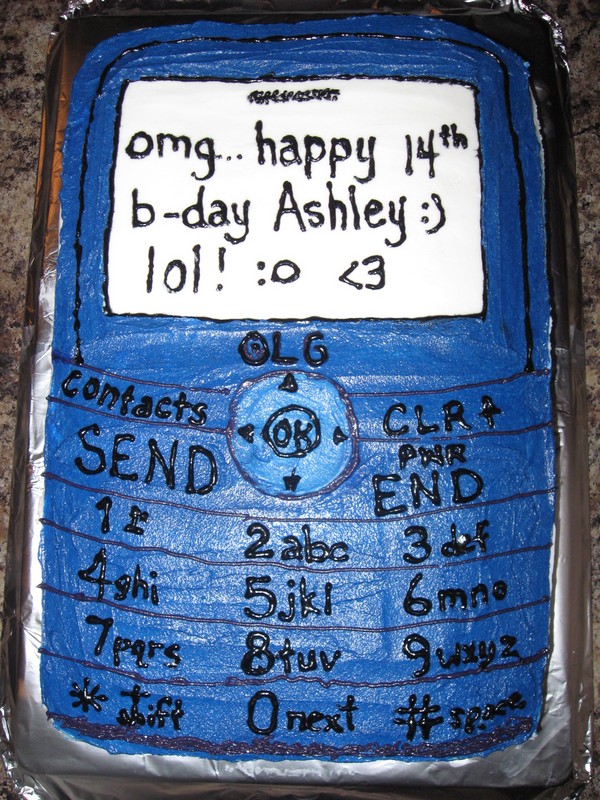 omg.. happy 14th
b-day Ashley :)
lol! :o <3
OLG
contacts
CLR
SEND
OK
PWR
END
1
2abc
3 def
4ghi
5jkl
6mno
7pqrs
8tuv
9wxyz
* shift
0 next
# space